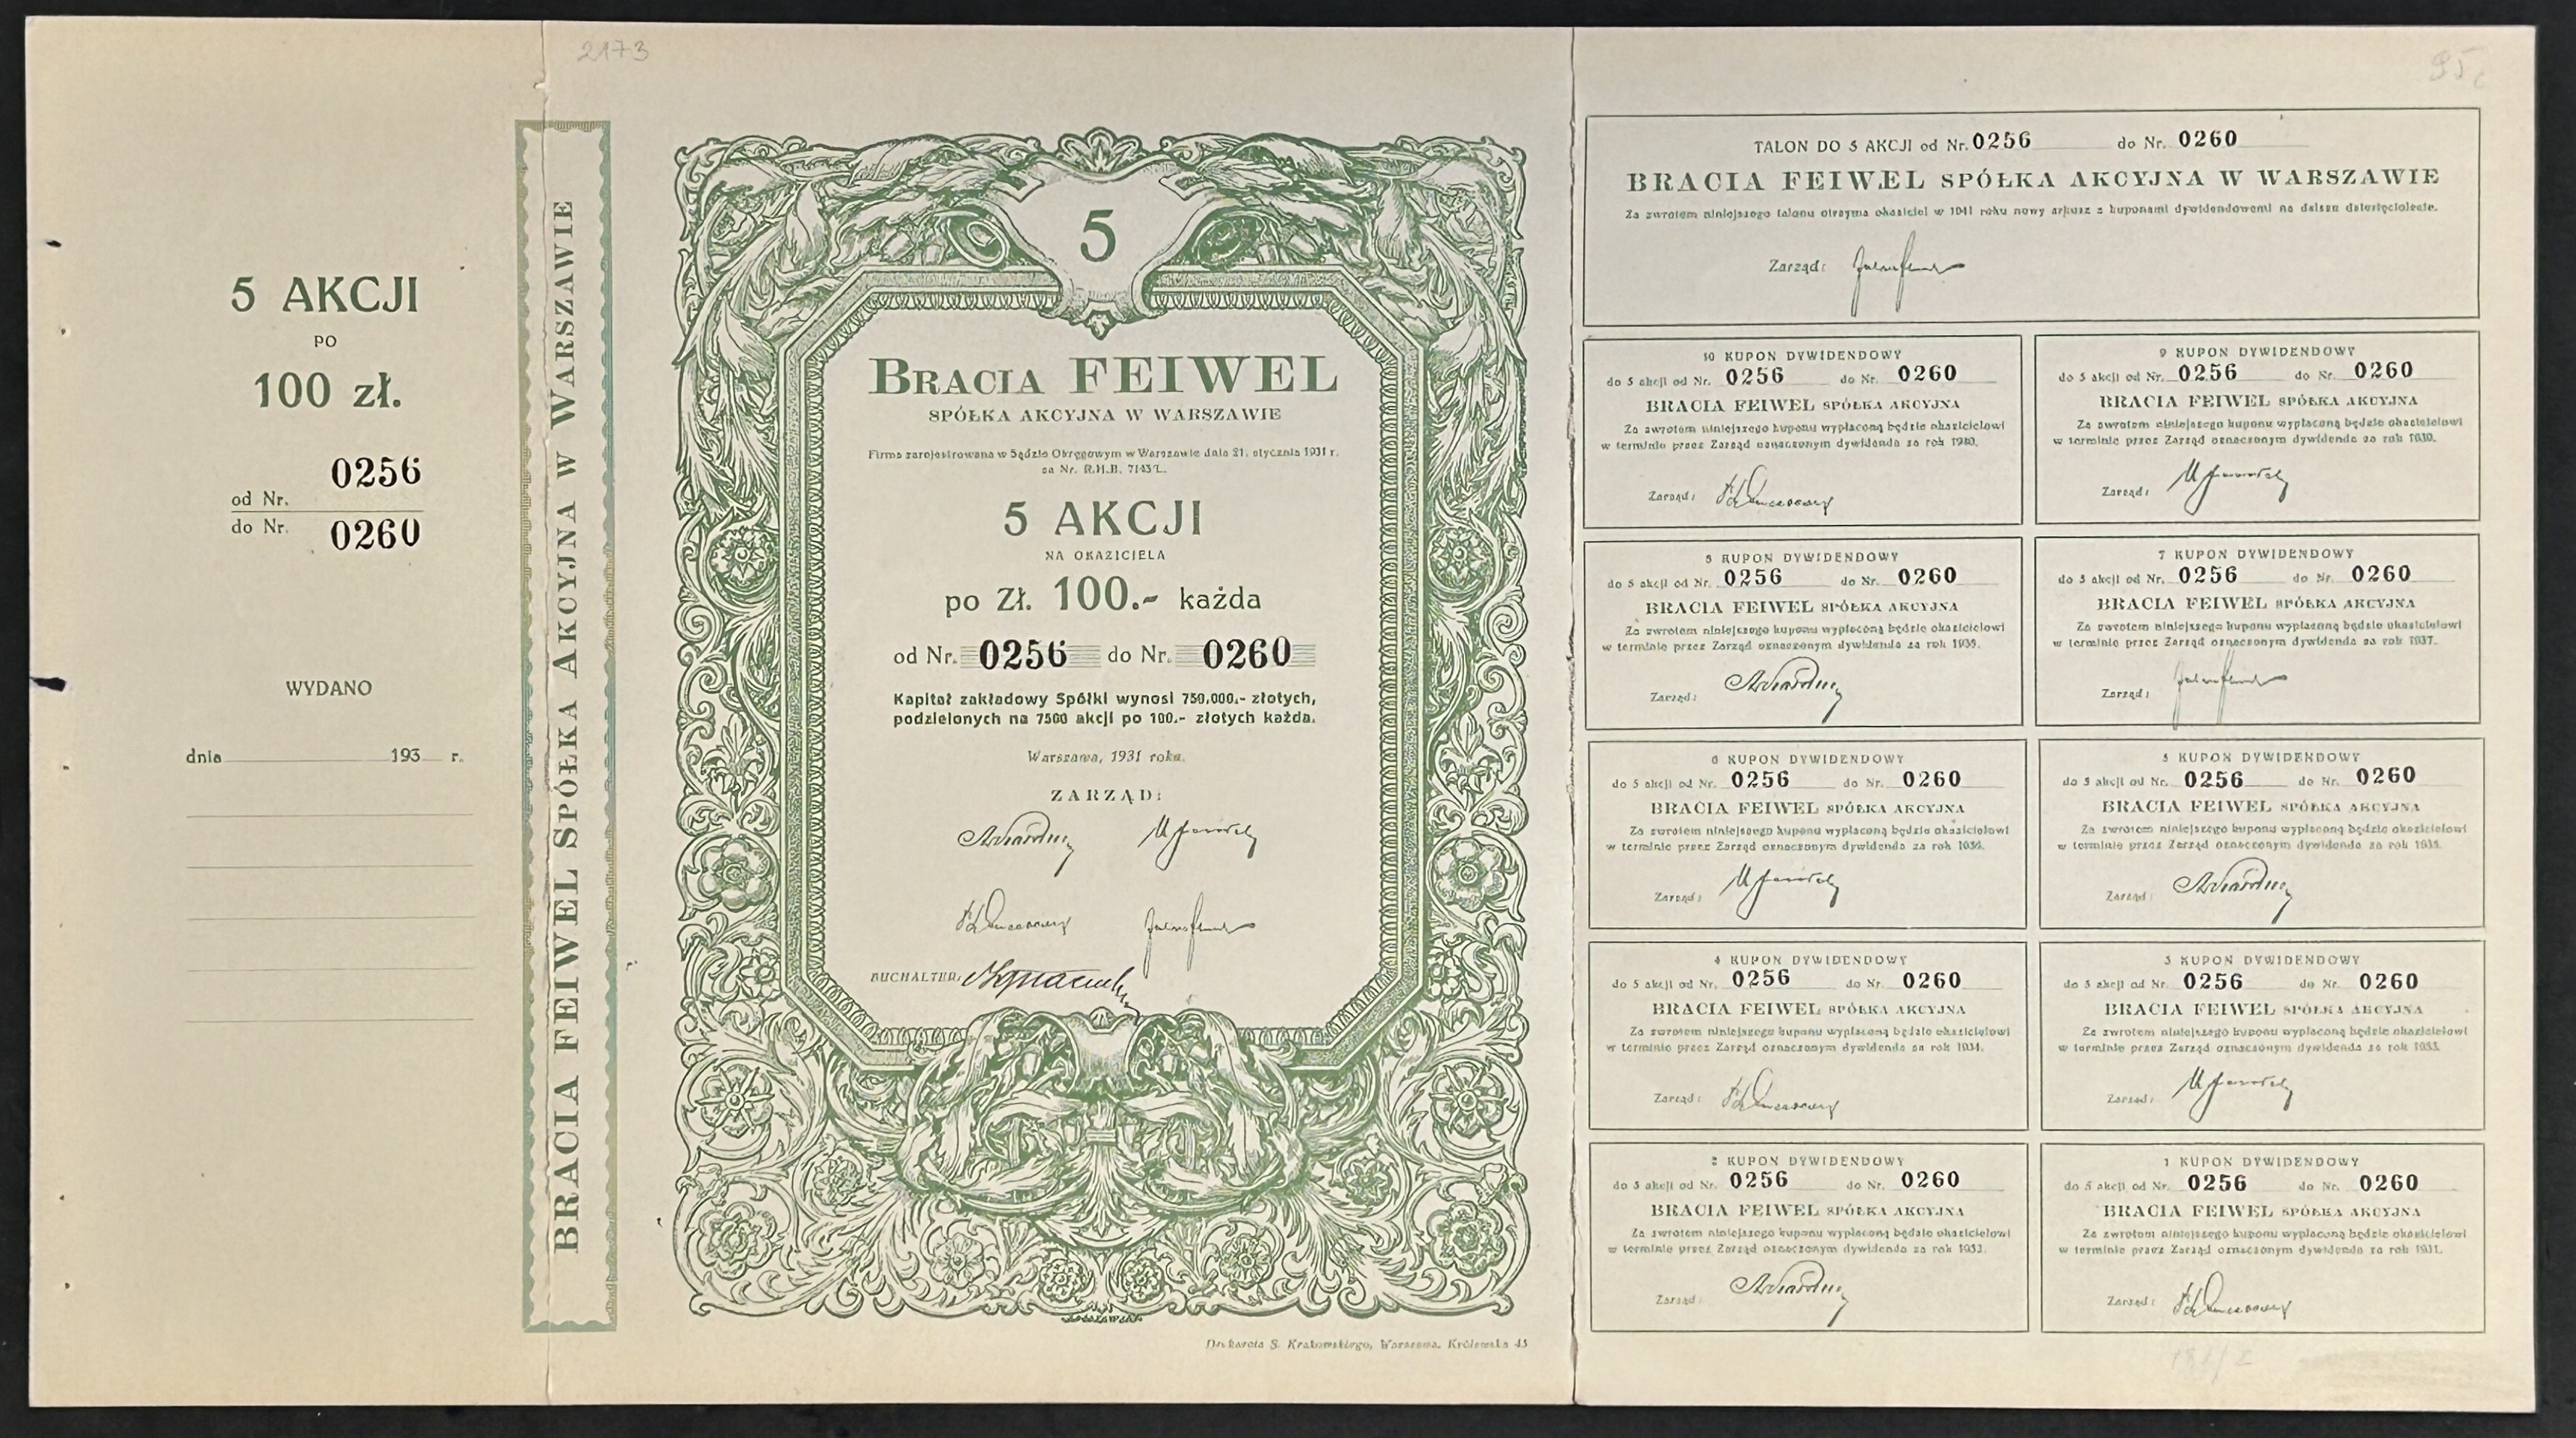 2173
5 AKCJI
PO
100 zł.
od Nr. 0256
do Nr. 0260
WYDANO
dnia 193 r.
BRACIA FEIWEL SPÓŁKA AKCYJNA W WARSZAWIE
5
BRACIA FEIWEL
SPÓŁKA AKCYJNA W WARSZAWIE
Firma zarejestrowana w Sądzie Okręgowym w Warszawie dnia 21. stycznia 1931 r.
za Nr. R.H.B. 7143/L.
5 AKCJI
NA OKAZICIELA
po Zł. 100.- każda
od Nr. 0256 do Nr. 0260
Kapitał zakładowy Spółki wynosi 750,000.- złotych,
podzielonych na 7500 akcji po 100.- złotych każda.
Warszawa, 1931 roku.
ZARZĄD:
BUCHALTER:
Drukarnia S. Krakowskiego, Warszawa, Królewska 43
95
TALON DO 5 AKCJI od Nr. 0256 do Nr. 0260
BRACIA FEIWEL SPÓŁKA AKCYJNA W WARSZAWIE
Za zwrotem niniejszego talonu otrzyma okaziciel w 1941 roku nowy arkusz z kuponami dywidendowemi na dalsze dziesięciolecie.
Zarząd:
10 KUPON DYWIDENDOWY
do 5 akcji od Nr. 0256 do Nr. 0260
BRACIA FEIWEL SPÓŁKA AKCYJNA
Za zwrotem niniejszego kuponu wypłaconą będzie okazicielowi
w terminie przez Zarząd oznaczonym dywidenda za rok 1940.
Zarząd:
9 KUPON DYWIDENDOWY
do 5 akcji od Nr. 0256 do Nr. 0260
BRACIA FEIWEL SPÓŁKA AKCYJNA
Za zwrotem niniejszego kuponu wypłaconą będzie okazicielowi
w terminie przez Zarząd oznaczonym dywidenda za rok 1939.
Zarząd:
8 KUPON DYWIDENDOWY
do 5 akcji od Nr. 0256 do Nr. 0260
BRACIA FEIWEL SPÓŁKA AKCYJNA
Za zwrotem niniejszego kuponu wypłaconą będzie okazicielowi
w terminie przez Zarząd oznaczonym dywidenda za rok 1938.
Zarząd:
7 KUPON DYWIDENDOWY
do 5 akcji od Nr. 0256 do Nr. 0260
BRACIA FEIWEL SPÓŁKA AKCYJNA
Za zwrotem niniejszego kuponu wypłaconą będzie okazicielowi
w terminie przez Zarząd oznaczonym dywidenda za rok 1937.
Zarząd:
6 KUPON DYWIDENDOWY
do 5 akcji od Nr. 0256 do Nr. 0260
BRACIA FEIWEL SPÓŁKA AKCYJNA
Za zwrotem niniejszego kuponu wypłaconą będzie okazicielowi
w terminie przez Zarząd oznaczonym dywidenda za rok 1936.
Zarząd:
5 KUPON DYWIDENDOWY
do 5 akcji od Nr. 0256 do Nr. 0260
BRACIA FEIWEL SPÓŁKA AKCYJNA
Za zwrotem niniejszego kuponu wypłaconą będzie okazicielowi
w terminie przez Zarząd oznaczonym dywidenda za rok 1935.
Zarząd:
4 KUPON DYWIDENDOWY
do 5 akcji od Nr. 0256 do Nr. 0260
BRACIA FEIWEL SPÓŁKA AKCYJNA
Za zwrotem niniejszego kuponu wypłaconą będzie okazicielowi
w terminie przez Zarząd oznaczonym dywidenda za rok 1934.
Zarząd:
3 KUPON DYWIDENDOWY
do 5 akcji od Nr. 0256 do Nr. 0260
BRACIA FEIWEL SPÓŁKA AKCYJNA
Za zwrotem niniejszego kuponu wypłaconą będzie okazicielowi
w terminie przez Zarząd oznaczonym dywidenda za rok 1933.
Zarząd:
2 KUPON DYWIDENDOWY
do 5 akcji od Nr. 0256 do Nr. 0260
BRACIA FEIWEL SPÓŁKA AKCYJNA
Za zwrotem niniejszego kuponu wypłaconą będzie okazicielowi
w terminie przez Zarząd oznaczonym dywidenda za rok 1932.
Zarząd:
1 KUPON DYWIDENDOWY
do 5 akcji od Nr. 0256 do Nr. 0260
BRACIA FEIWEL SPÓŁKA AKCYJNA
Za zwrotem niniejszego kuponu wypłaconą będzie okazicielowi
w terminie przez Zarząd oznaczonym dywidenda za rok 1931.
Zarząd: